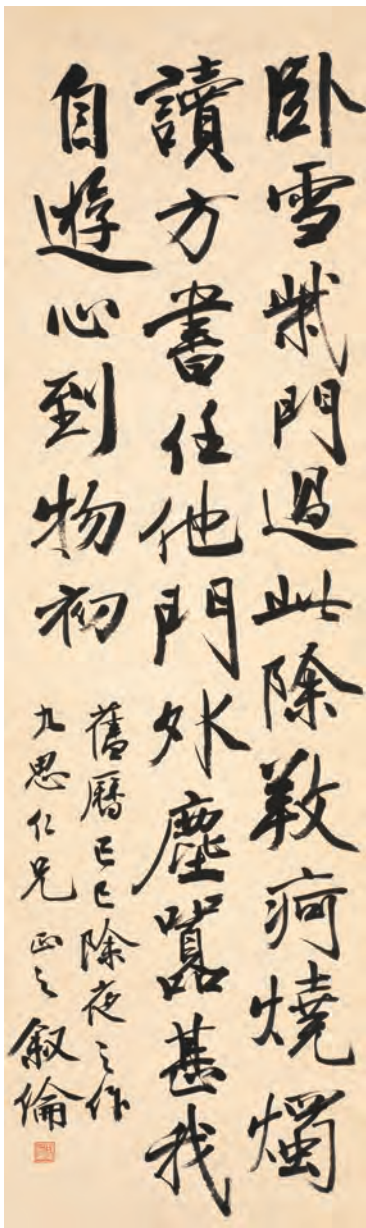 卧雪柴門過此除救疴燒燭
讀方書任他門外塵囂甚我
自遊心到物初
舊曆己巳除夜之作
九思仁兄 正之 叙倫